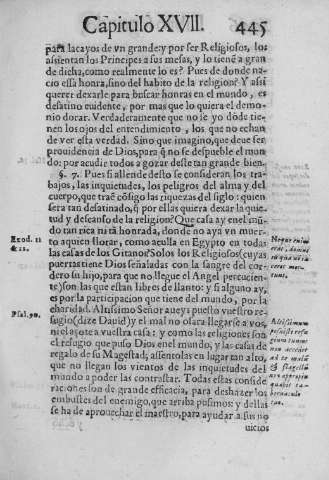 Capitulo XVII. 445
para lacayos de vn grande: y por ser Religiosos, los
assientan los Principes a sus mesas, y lo tienẽ a gran
de dicha, como realmente lo es? Pues de donde na-
cio essa honra, sino del habito de la religion? Y assi
querer dexarle para buscar honras en el mundo, es
desatino euidente, por mas que lo quiera el demo-
nio dorar. Verdaderamente que no se yo dõde tie-
nen los ojos del entendimiento, los que no echan
de ver esta verdad. Sino que imagino, que deue ser
prouidencia de Dios, para q̃ no se despueble el mun
do: por acudir todos a gozar deste tan grande bien.
§. 7. Pues si allende desto se consideran los tra-
bajos, las inquietudes, los peligros del alma y del
cuerpo, que traẽ cõsigo las riquezas del siglo: quien
sera tan desatinado, q̃ por ellas quiera dexar la quie-
tud y descanso de la religion? Que casa ay en el mũ-
do tan rica ni tã honrada, donde no aya vn muer-
to a quien llorar, como aculla en Egypto en todas
las casas de los Gitanos? Solos los Religiosos (cuyas
puertas tiene Dios señaladas con la sangre del cor-
dero su hijo, para que no llegue el Angel percucien-
te) son las que estan libres de llanto: y si alguno ay,
es por la participacion que tiene del mundo, por la
charidad. Altissimo Señor aueys puesto vuestro re-
fugio (dize Dauid) y el mal no osara llegarse a vos,
ni el açote a vuestra casa: y como las religiones son
el refugio que puso Dios en el mundo, y las casas de
regalo de su Magestad; assentolas en lugar tan alto,
que no llegan los vientos de las inquietudes del
mundo a poder las contrastar. Todas estas conside
raciones son de grande efficacia, para deshazer los
embustes del enemigo, que arriba pusimos: y dellas
se ha de aprouechar el maestro, para ayudar a sus no
uicios
Exod. 11
& 12.
Psal. 90.
Altissimum
posuisti refu
gium tuum
non accedet
ad te malũ
& flagellũ
non appropin
quabit ta-
bernaculo
tuo.